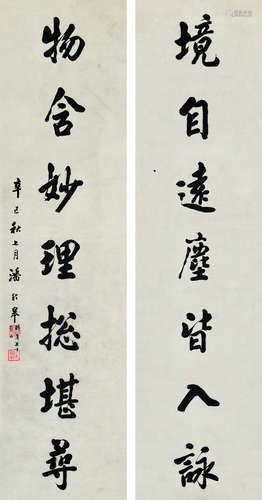 境自遠塵皆入詠
物含妙理捴堪尋
辛巳秋上月潘齡皋